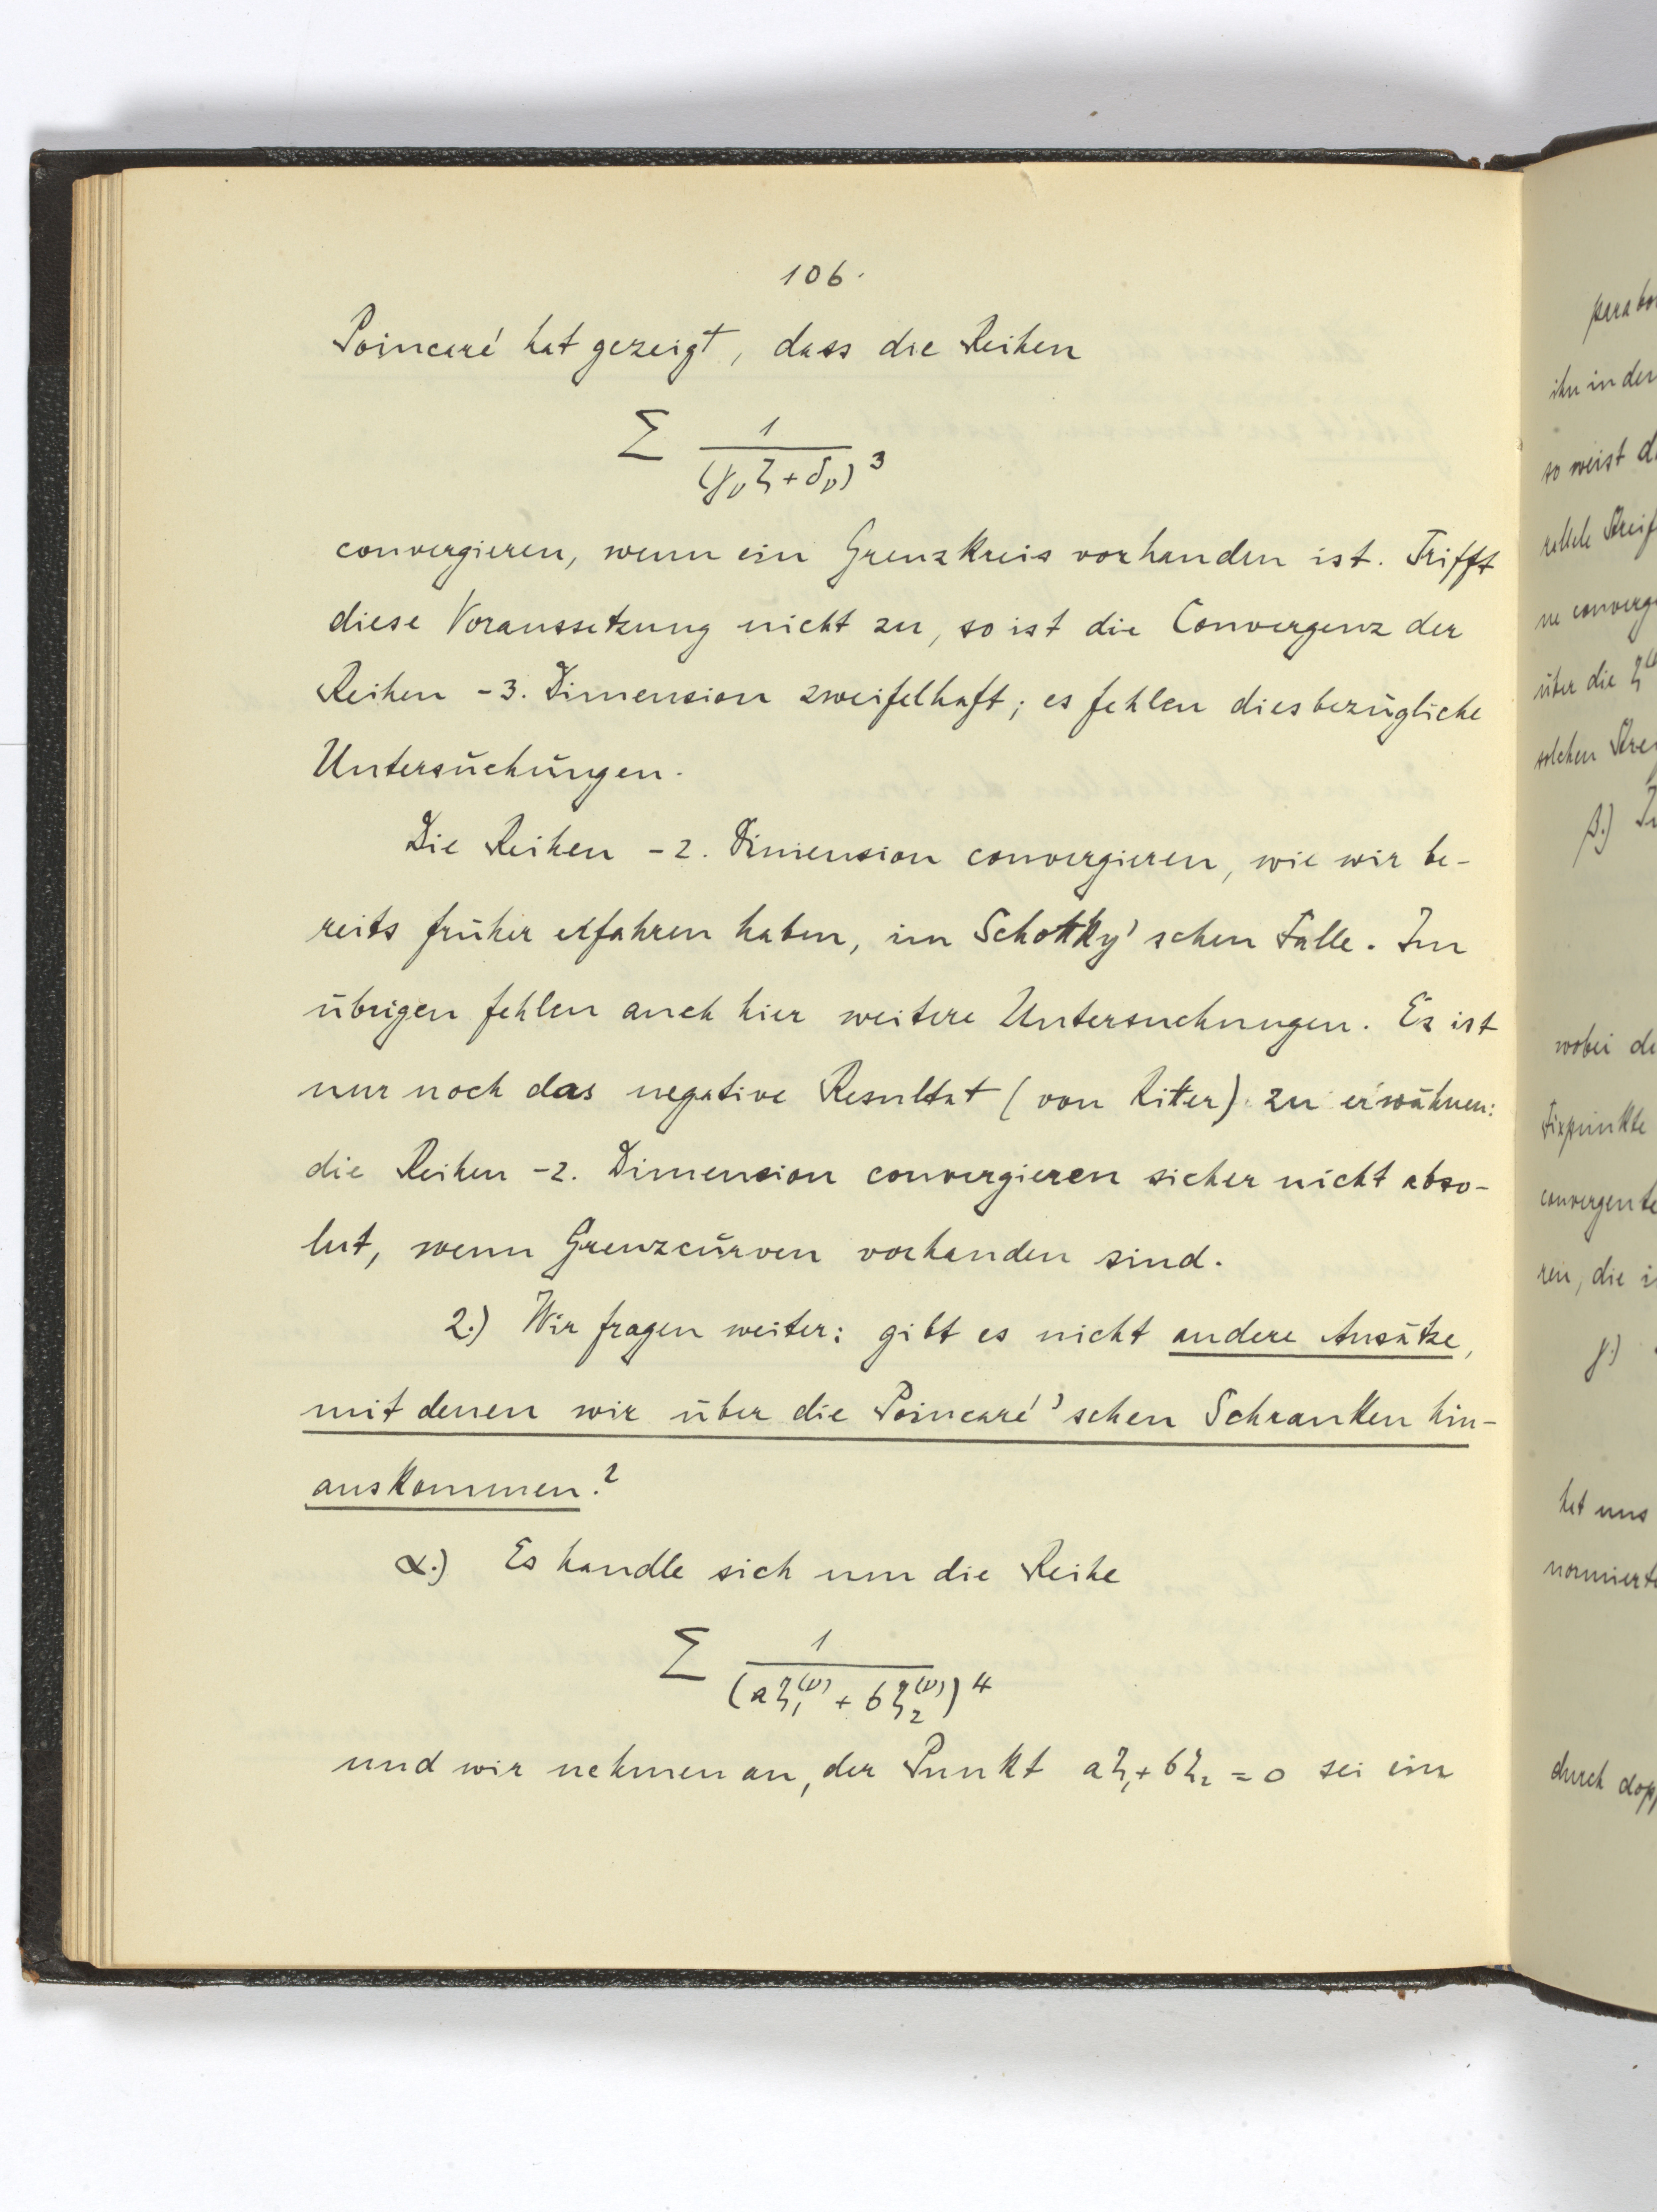 106.
Poincaré hat gezeigt, dass die Reihen
∑ 1/(γ_ν ζ + δ_ν)^3
convergieren, wenn ein Grenzkreis vorhanden ist. Trifft
diese Voraussetzung nicht zu, so ist die Convergenz der
Reihen -3. Dimension zweifelhaft; es fehlen diesbezügliche
Untersuchungen.
Die Reihen -2. Dimension convergieren, wie wir be-
reits früher erfahren haben, im Schottky'schen Falle. Im
übrigen fehlen auch hier weitere Untersuchungen. Es ist
nur noch das negative Resultat (von Ritter) zu erwähnen:
die Reihen -2. Dimension convergieren sicher nicht abso-
lut, wenn Grenzcurven vorhanden sind.
2.) Wir fragen weiter: gibt es nicht andere Ansätze,
mit denen wir über die Poincaré'schen Schranken hin-
auskommen?
α.) Es handle sich um die Reihe
∑ 1/(aζ_1^(ν) + bζ_2^(ν))^4
und wir nehmen an, der Punkt aζ_1 + bζ_2 = 0 sei ein
ihn in der
so weist
über die ζ
solchen
β.)
wobei
Fixpunkte
convergente
ren, die
γ.)
het uns
normierte
durch